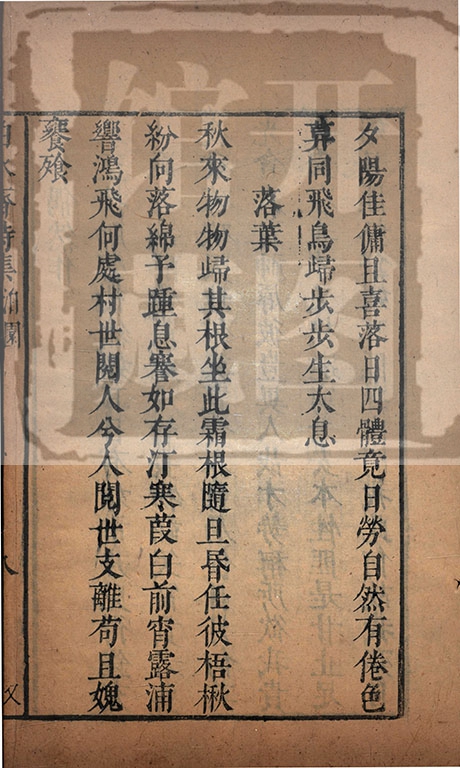 夕陽佳傭且喜落日四體竟日勞自然有倦色
莫同飛鳥歸步步生太息
落葉
秋來物物歸其根坐此霜根隨旦昬任彼梧楸
紛向落綿予踵息謇如存汀寒葭白前宵露浦
響鴻飛何處村世閱人兮人閱世支離苟且媿
饔飱